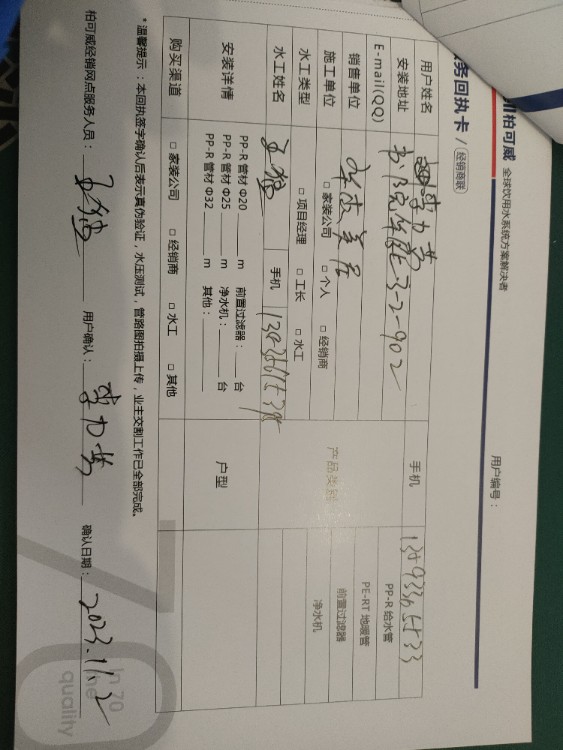 柏可威 全球饮用水系统方案解决者
务回执卡 / 经销商联
用户编号：
用户姓名 手机
安装地址 3-2-902
E-mail(QQ) PP-R 给水管
销售单位 PE-RT 地暖管
施工单位 □ 家装公司 □ 个人 □ 经销商 产品类别 前置过滤器
水工类型 □ 项目经理 □ 工长 □ 水工 净水机
水工姓名 手机
安装详情 PP-R 管材 Φ20 m 前置过滤器： 台 户型
PP-R 管材 Φ25 m 净水机： 台
PP-R 管材 Φ32 m 其他：
购买渠道 □ 家装公司 □ 经销商 □ 水工 □ 其他
*温馨提示：本回执签字确认后表示真伪验证，水压测试，管路图拍摄上传，业主交割工作已全部完成。
柏可威经销网点服务人员： 用户确认： 确认日期：2023.11.2
In 70
quality